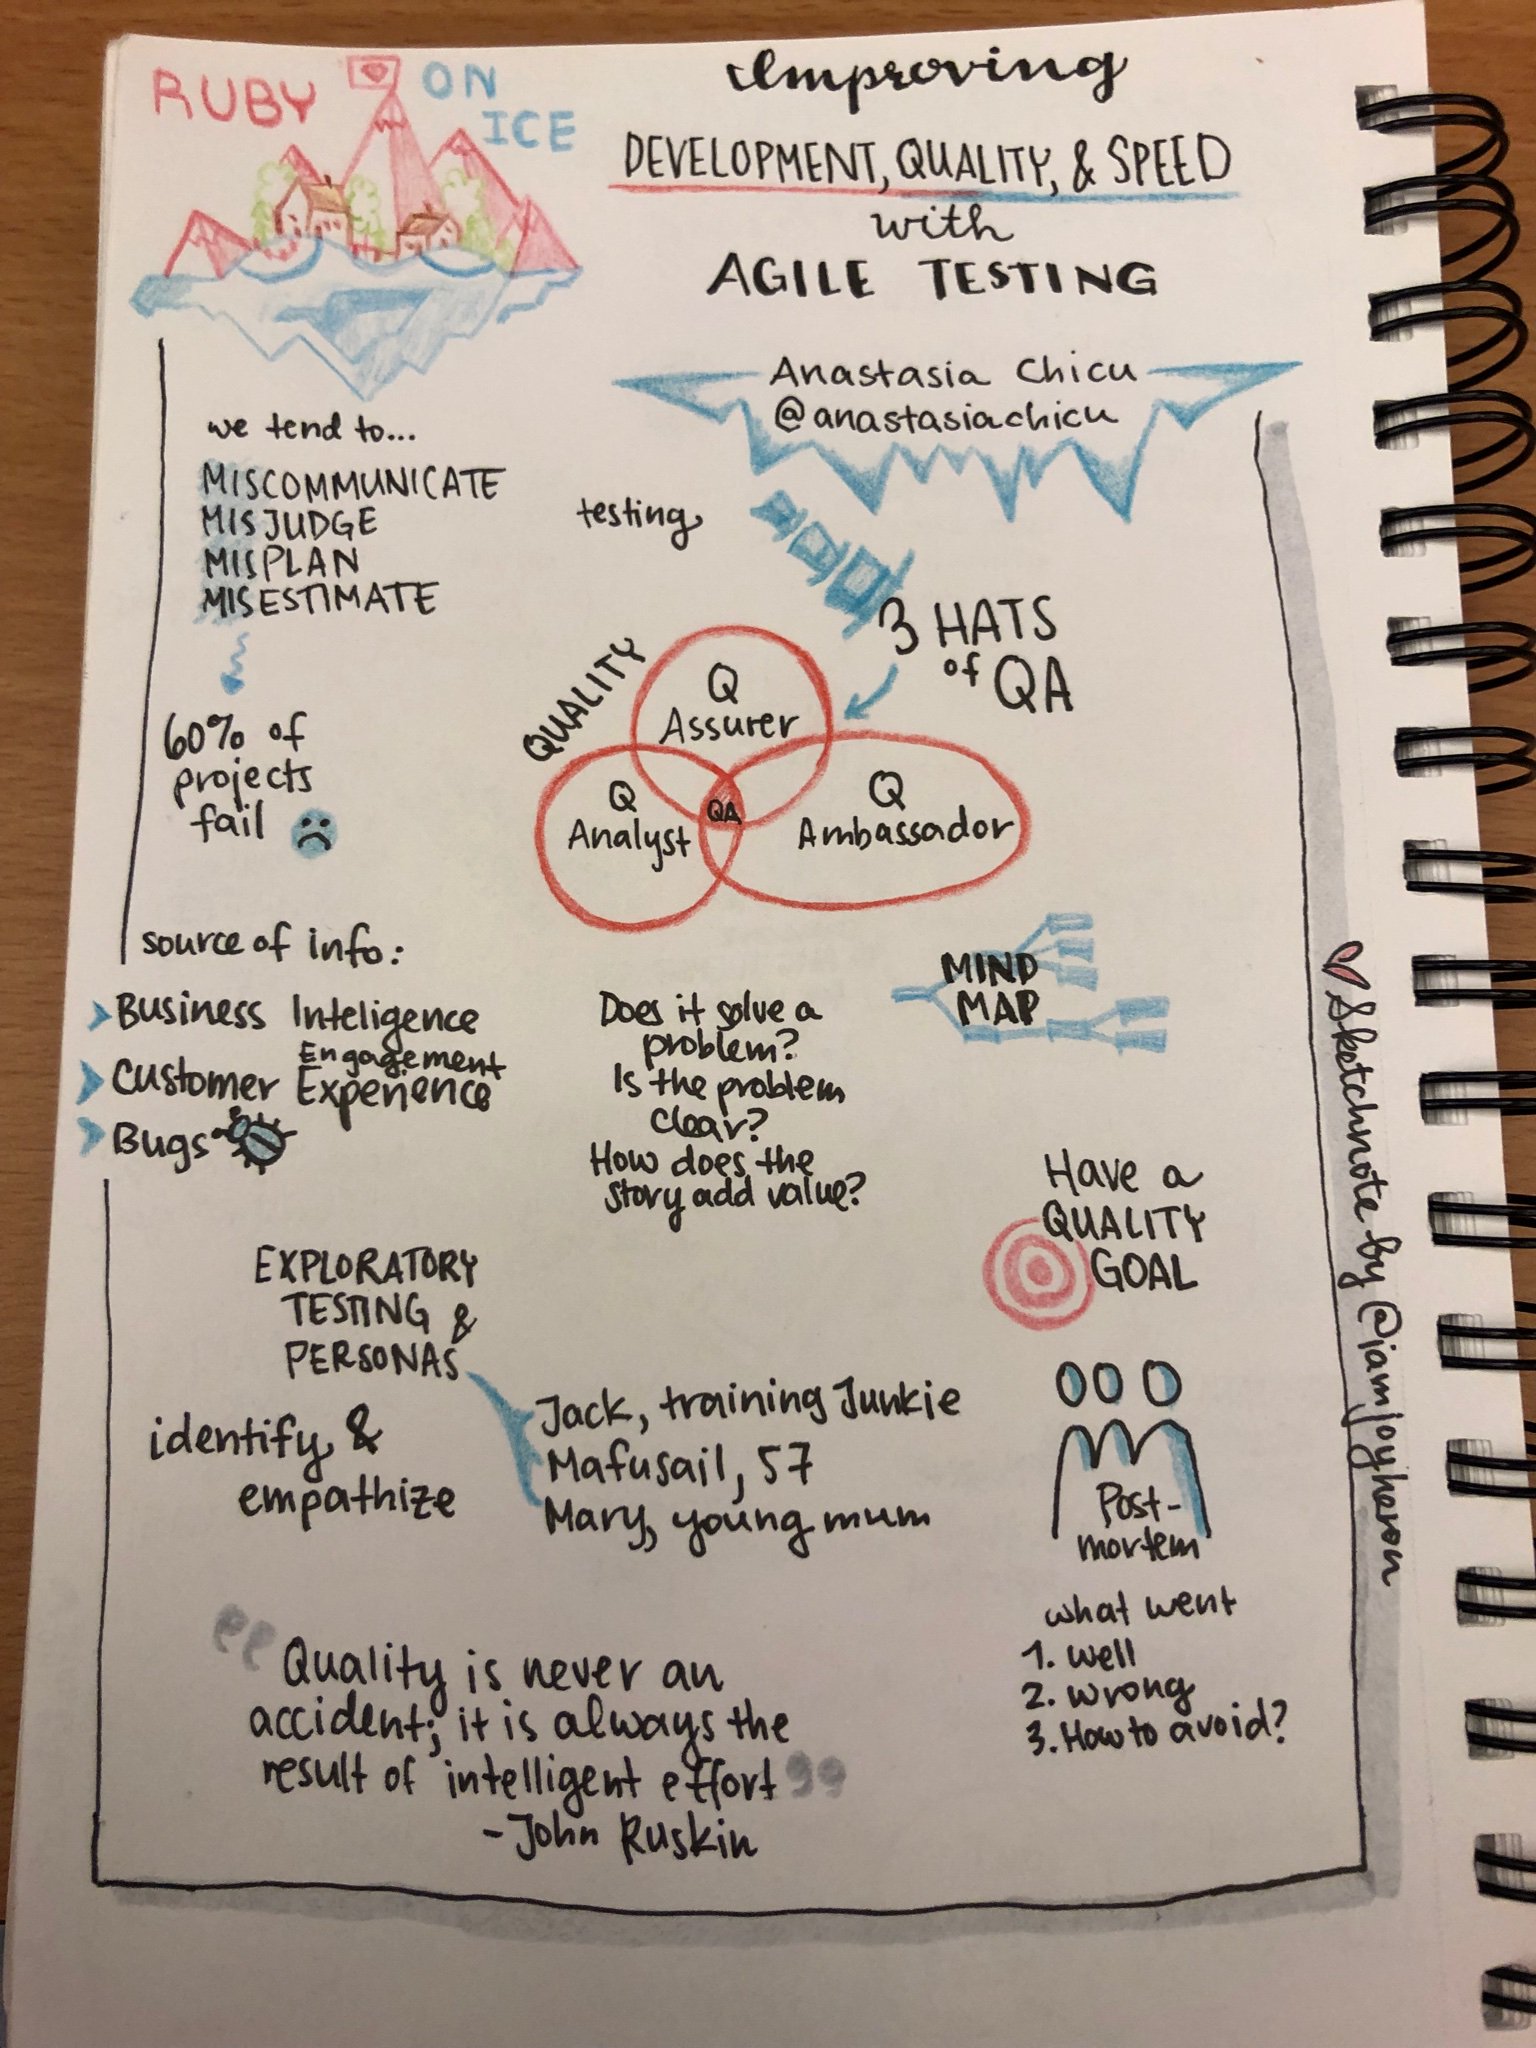 RUBY ON
ICE
Improving
DEVELOPMENT, QUALITY, & SPEED
with
AGILE TESTING
Anastasia Chicu
@anastasiachicu
we tend to...
MISCOMMUNICATE
MISJUDGE
MISPLAN
MISESTIMATE
60% of
projects
fail
testing
3 HATS
of QA
QUALITY
Q
Assurer
Q
Analyst
QA
Q
Ambassador
source of info:
Business Inteligence
Engagement
Customer Experience
Bugs
Does it solve a
problem?
Is the problem
clear?
How does the
story add value?
MIND
MAP
Have a
QUALITY
GOAL
EXPLORATORY
TESTING &
PERSONAS
identify &
empathize
Jack, training Junkie
Mafusail, 57
Mary, young mum
Post-
mortem
what went
1. well
2. wrong
3. How to avoid?
"Quality is never an
accident; it is always the
result of intelligent effort"
- John Ruskin
Sketchnote by @iamjoyheron